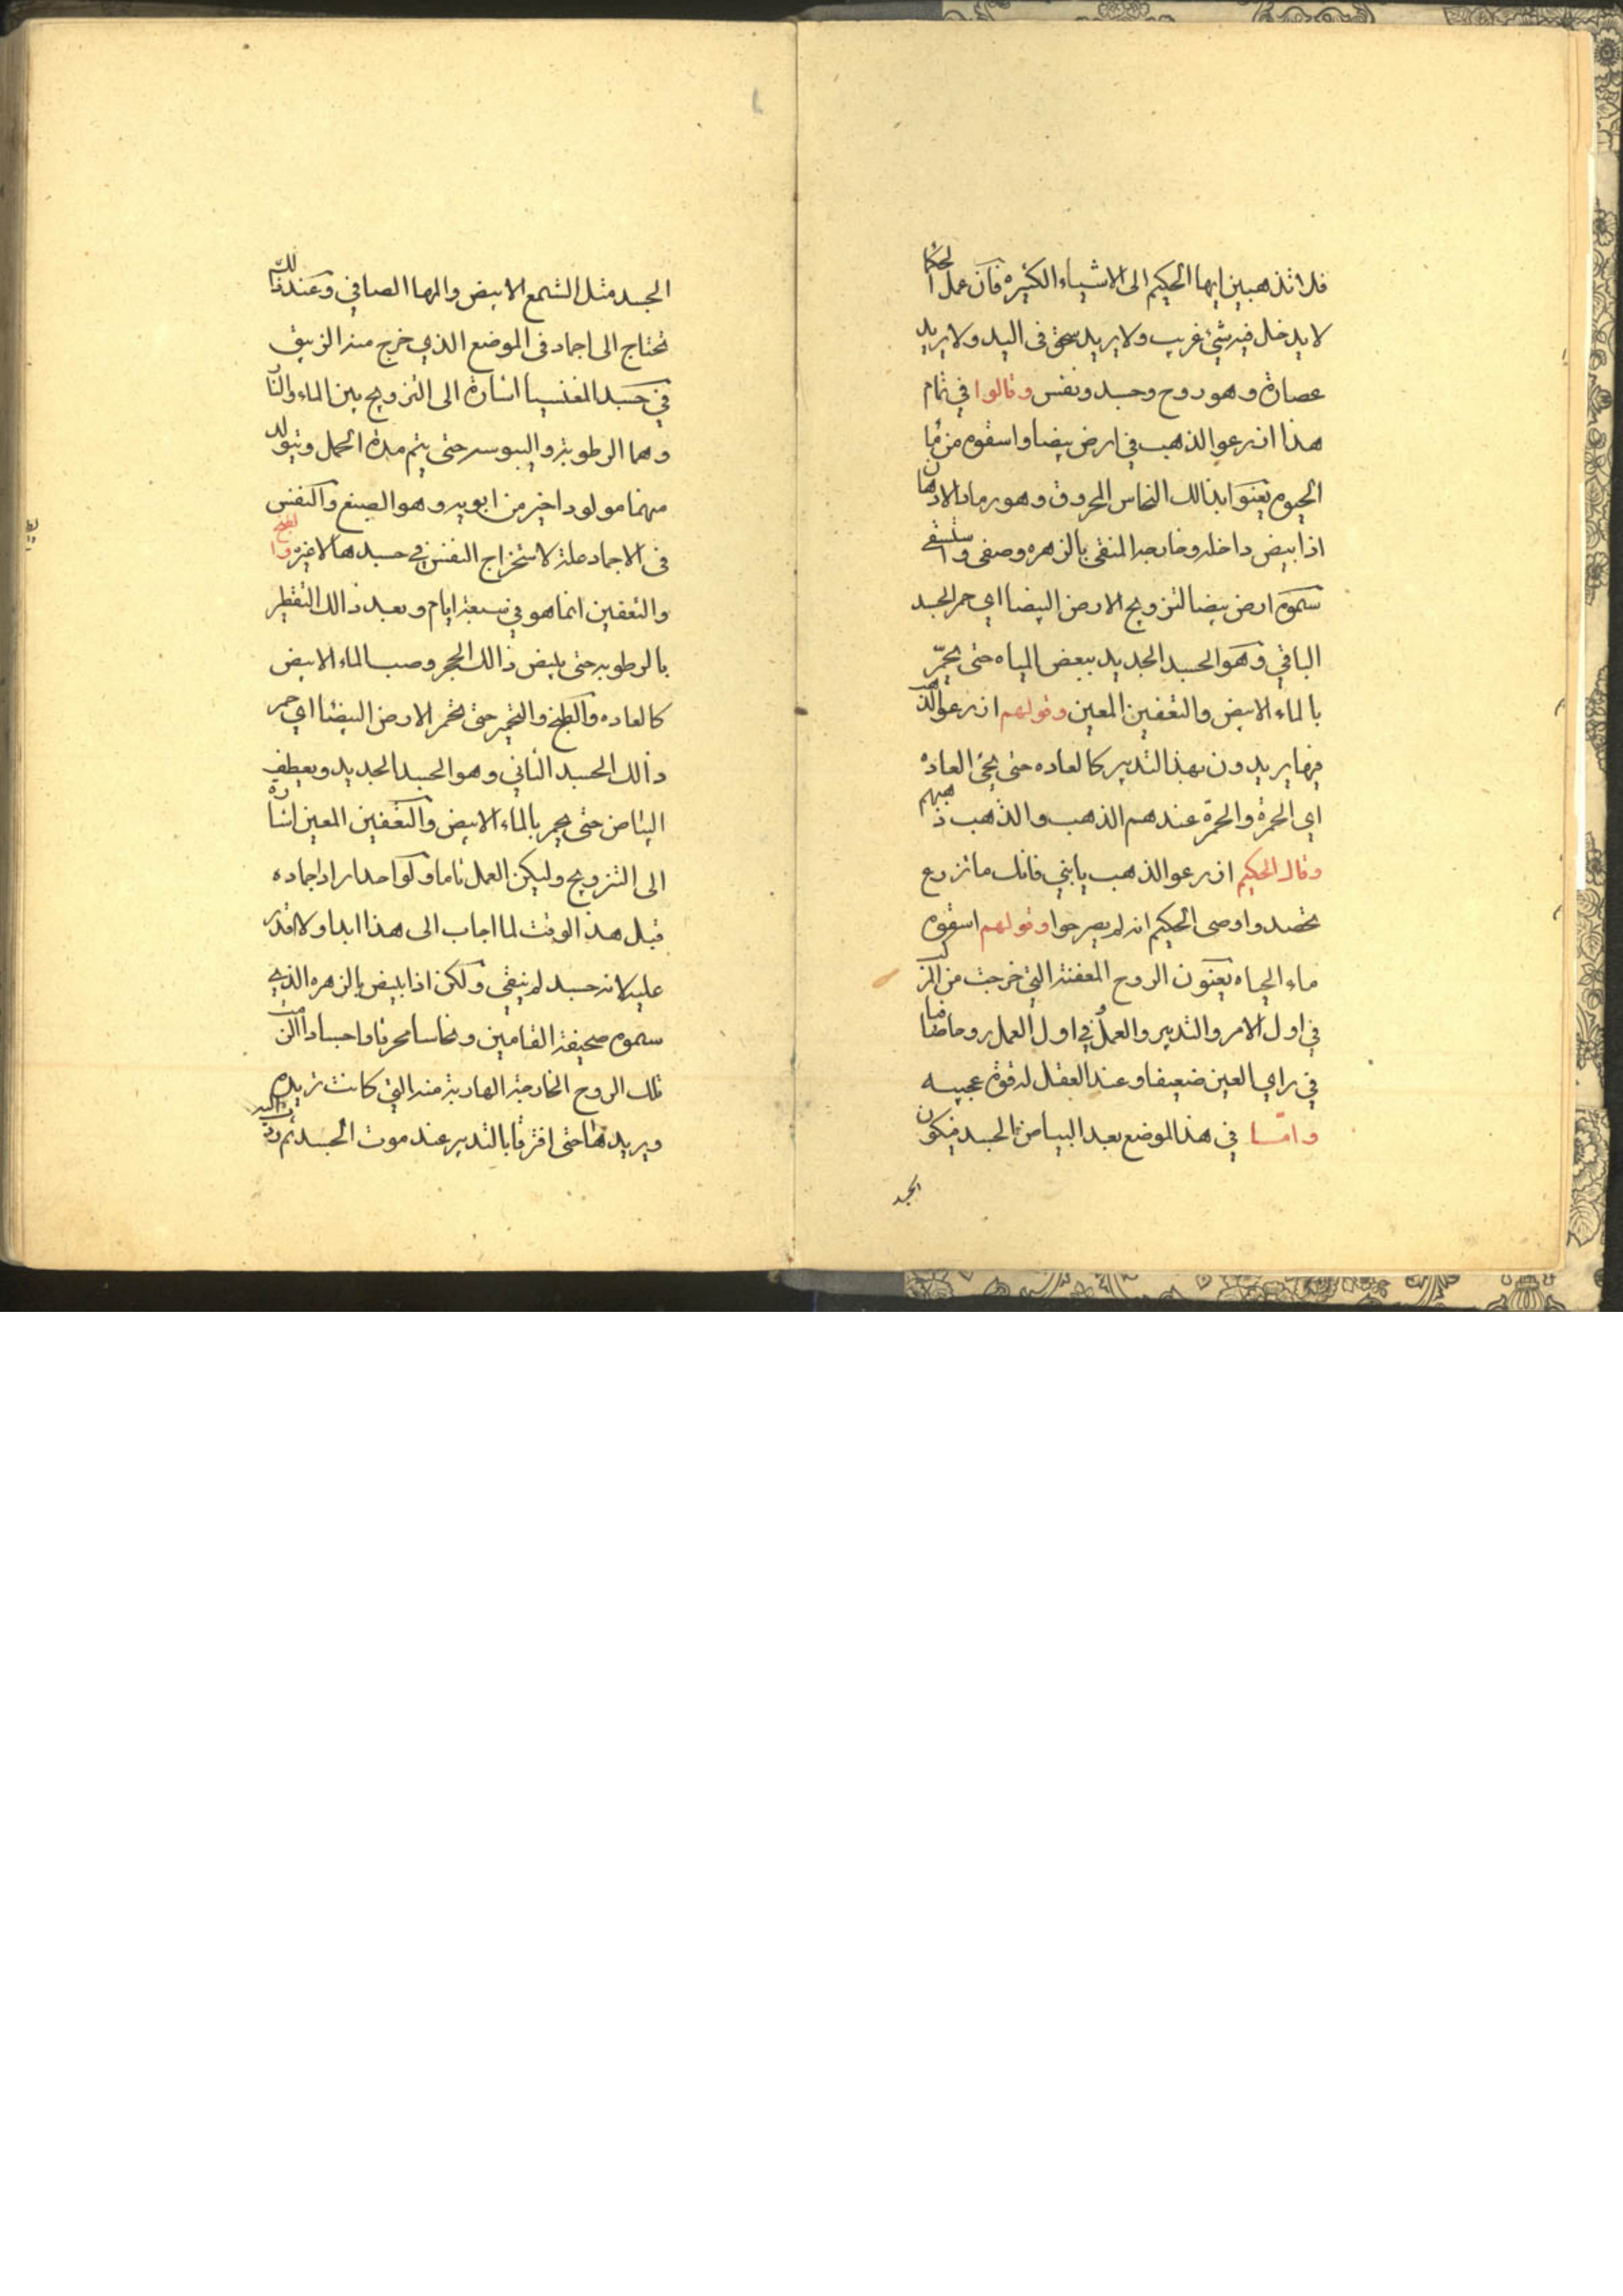 فلا تذهبين ايها الحكيم الى الاشياء الكثيره فان عمل الحكما
لا يدخل فيه شئ غريب ولا يريد سحق فى اليد ولا يريد
عصارة وهو روح وجسد ونفس وقالوا في تمام
هذا ازرعوا الذهب في ارض بيضا واسقوه من ما
الحيوه يعنوا بذالك النحاس المحروق وهو رماد الادهان
اذا ابيض داخله وخارجه المنقى بالزهره وصفى واستسقى
سموه ارض بيضا لتزويج الارض البيضا اي حمر الجسد
الباقي وهو الجسد الجديد ببعض المياه حتى يحمّر
بالماء الابيض والتعفين المعين وقولهم ازرعوا الذهب
فيها يريدون بهذا التدبير كالعاده حتى يجئ العادة
اي الحمرة والحمرة عندهم الذهب والذهب ذهبهم
وقال الحكيم ازرعوا الذهب يا بني فانك ما تزرع
تحصد واوصى الحكيم انه لم يصرحوا وقولهم اسقوه
ماء الحياه يعنون الروح المعفنة التي خرجت من المركب
في اول الامر والتدبير والعمل في اول العمل روحانيا
في راي العين ضعيفا وعند العقل له قوة عجيبه
وامّا في هذا الموضع بعد البياض الجسد فيكون
الجسد
الجسد مثل الشمع الابيض والمها الصافي وعند ذالك
تحتاج الى اجماد فى الموضع الذي خرج منه الزيبق
في جسد المغنسيا اشارة الى التزويج بين الماء والنا
وهما الرطوبة واليبوسه حتى يتم مدة الحمل ويتولد
منهما مولود اخير من ابويه وهو الصبغ والنفس
فى الاجماد علة لاستخراج النفس في جسدها الاخيره والطبخ
والتعفين انما هو في سبعة ايام وبعد ذالك التقطير
بالرطوبه حتى يبيض ذالك الحجر وصب الماء الابيض
كالعاده والطبخ والتخمير حتى تخمر الارض البيضا اي حمر
ذالك الجسد الثاني وهو الجسد الجديد ويعطف
البياض حتى يحمر بالماء الابيض والتعفين المعين اشارة
الى التزويج وليكن العمل تاما ولو احدا راد اجماده
قبل هذا الوقت لما اجاب الى هذا ابدا ولا قدر
عليه لانه جسد لم ينقى ولكن اذا ابيض بالزهره الذي
سموه صحيفة القامين ونحاسا محرقا واجسادا
تلك الروح الخارجة الهاربة منه التي كانت تريده
ويريدها حتى افترقا بالتدبير عند موت الجسد ثم ردت اليه